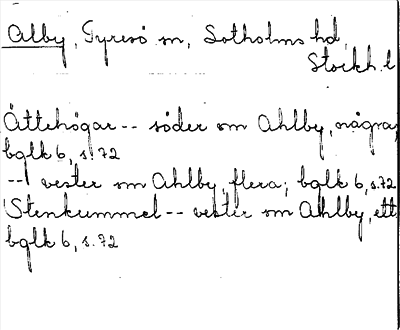 Alby, Tyresö sn, Sotholms hd,
Stockh. l
Ättehögar -- söder om Ahlby, några,
bglk 6, s. 72
-- vester om Ahlby, flera; bglk 6, s. 72
Stenkummel -- vester om Ahlby, ett,
bglk 6, s. 72